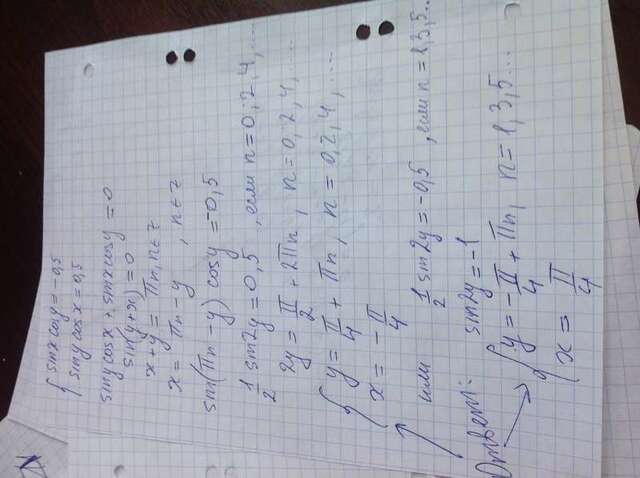 { sinx cosy = -0,5
siny cosx = 0,5
siny cosx + sinx cosy = 0
sin(y+x) = 0
x+y = πn, n∈z
x = πn - y , n∈z
sin(πn - y) cosy = -0,5
1/2 sin2y = 0,5 , если n = 0, 2, 4, ....
2y = π/2 + 2πn, n = 0, 2, 4, ....
{ y = π/4 + πn, n = 0,2,4, ....
x = - π/4
или 1/2 sin2y = -0,5 , если n = 1,3,5..
Ответ: sin2y = -1
{ y = - π/4 + πn, n = 1,3,5...
x = π/4